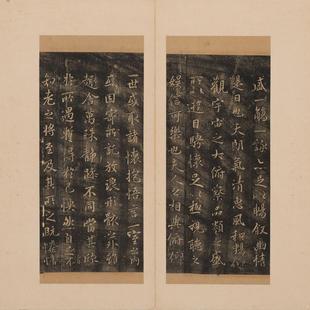 盛一觴一詠亦足以暢敘幽情
是日也天朗氣清惠風和暢仰
觀宇宙之大俯察品類之盛
所以遊目騁懷足以極視聽之
娛信可樂也夫人之相與俯仰
一世或取諸懷抱悟言一室之內
或因寄所託放浪形骸之外雖
趣舍萬殊靜躁不同當其欣
於所遇蹔得於己怏然自足不
知老之將至及其所之既惓情